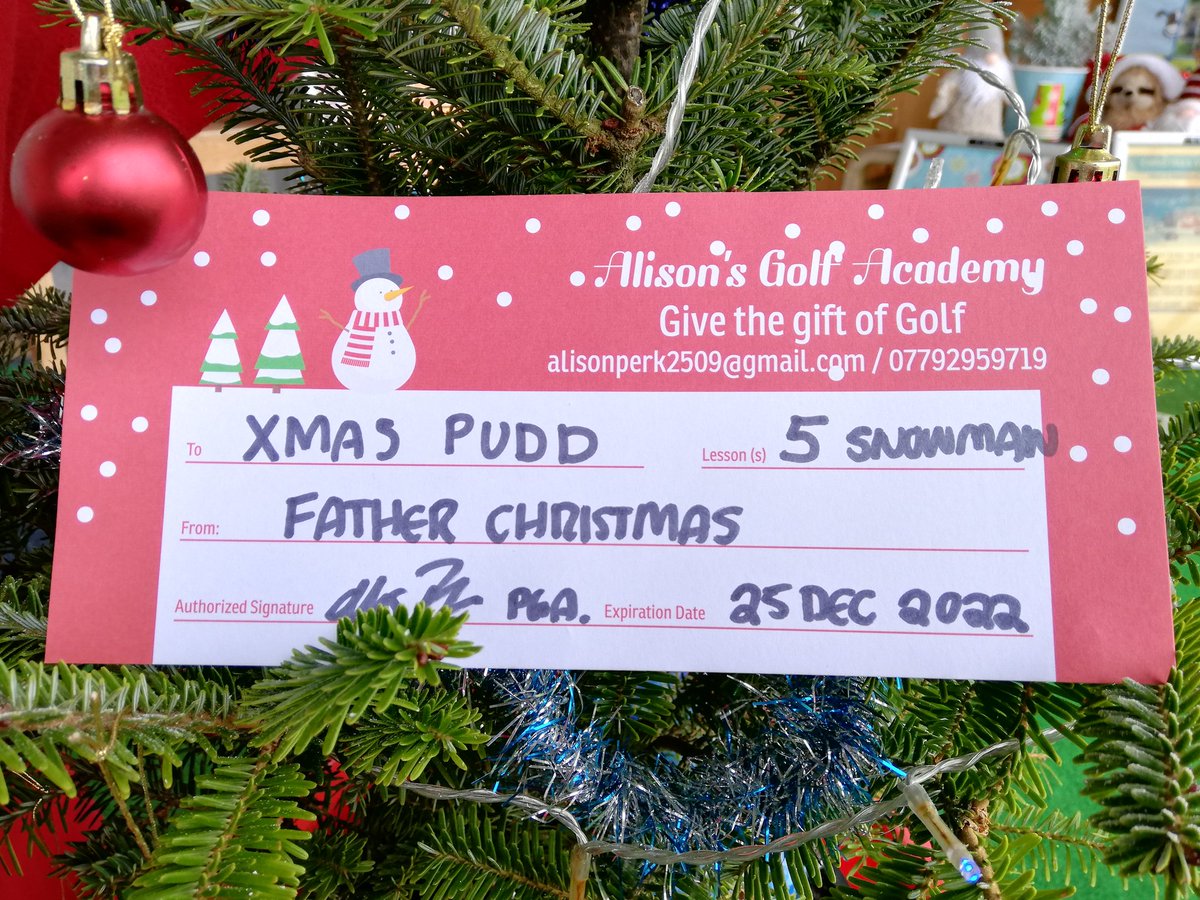 Alison's Golf Academy
Give the gift of Golf
alisonperk2509@gmail.com / 07792959719
To XMAS PUDD Lesson (s) 5 SNOWMAN
From: FATHER CHRISTMAS
Authorized Signature PGA. Expiration Date 25 DEC 2022